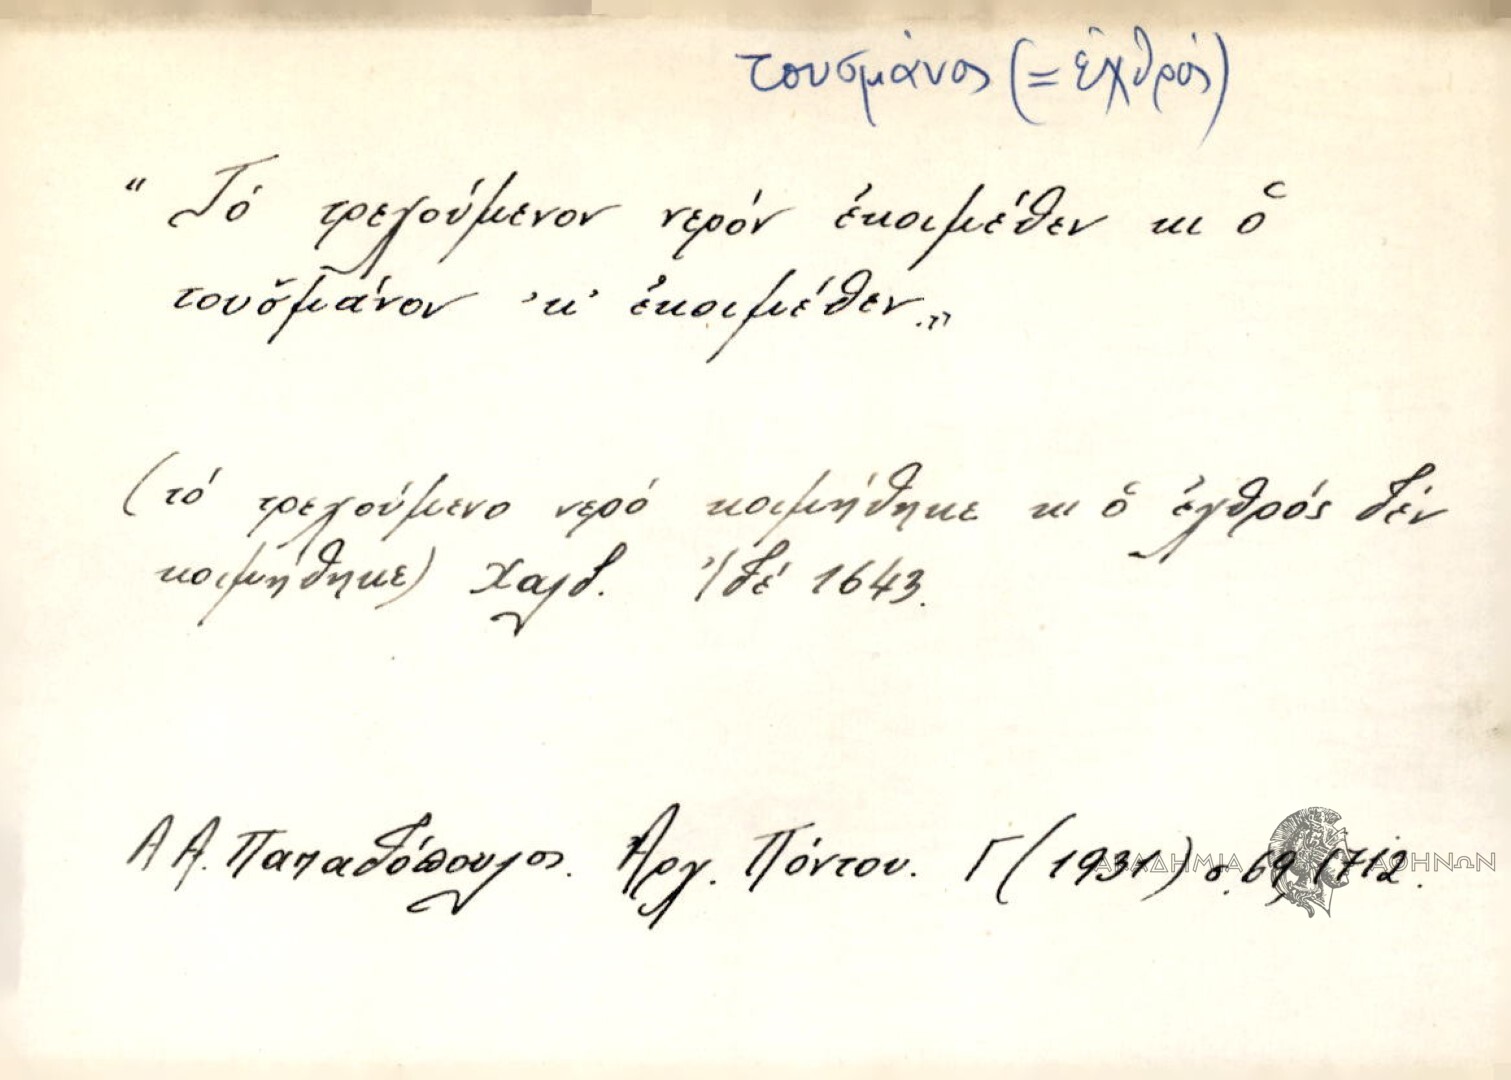 τουσμάνος (= ἐχθρός)
“ Τό τρεχούμενον νερόν ἐκοιμέθεν κι ὁ
τουσ̌μάνον 'κ' ἐκοιμέθεν."
(τό τρεχούμενο νερό κοιμήθηκε κι ὁ ἐχθρός δέν
κοιμήθηκε) Χαλδ. Ἰδέ 1643.
Α Α. Παπαδόπουλος. Ἀρχ. Πόντου. Γ (1931) σ. 69, 1712.
ΑΚΑΔΗΜΙΑ ΑΘΗΝΩΝ